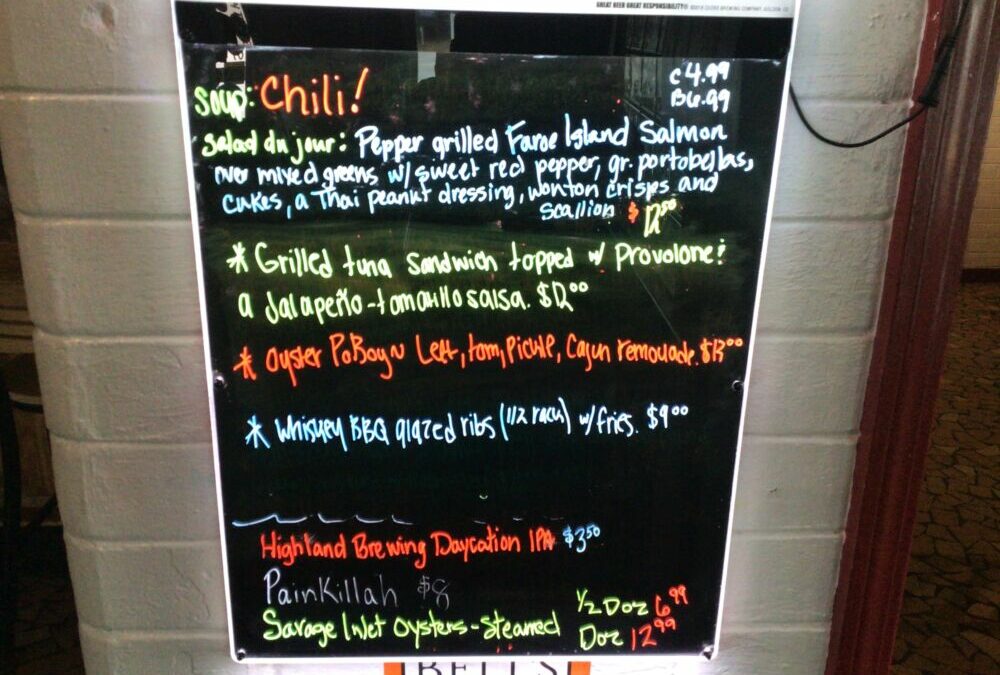 GREAT BEER GREAT RESPONSIBILITY®
Soup: Chili!
C 4.99
B 6.99
Salad du jour: Pepper grilled Faroe Island Salmon
over mixed greens w/ sweet red pepper, gr. portobellas,
cukes, a Thai peanut dressing, wonton crisps and
scallion $12.50
* Grilled tuna sandwich topped w/ Provolone &
a Jalapeño-tomatillo salsa. $12.00
* Oyster PoBoy~ Lett, tom, pickle, Cajun remoulade. $13.00
* Whiskey BBQ glazed ribs (1/2 rack) w/fries. $9.00
Highland Brewing Daycation IPA $3.50
PainKillah $8
Savage Inlet Oysters-Steamed
1/2 Doz 6.99
Doz 12.99
BELL'S